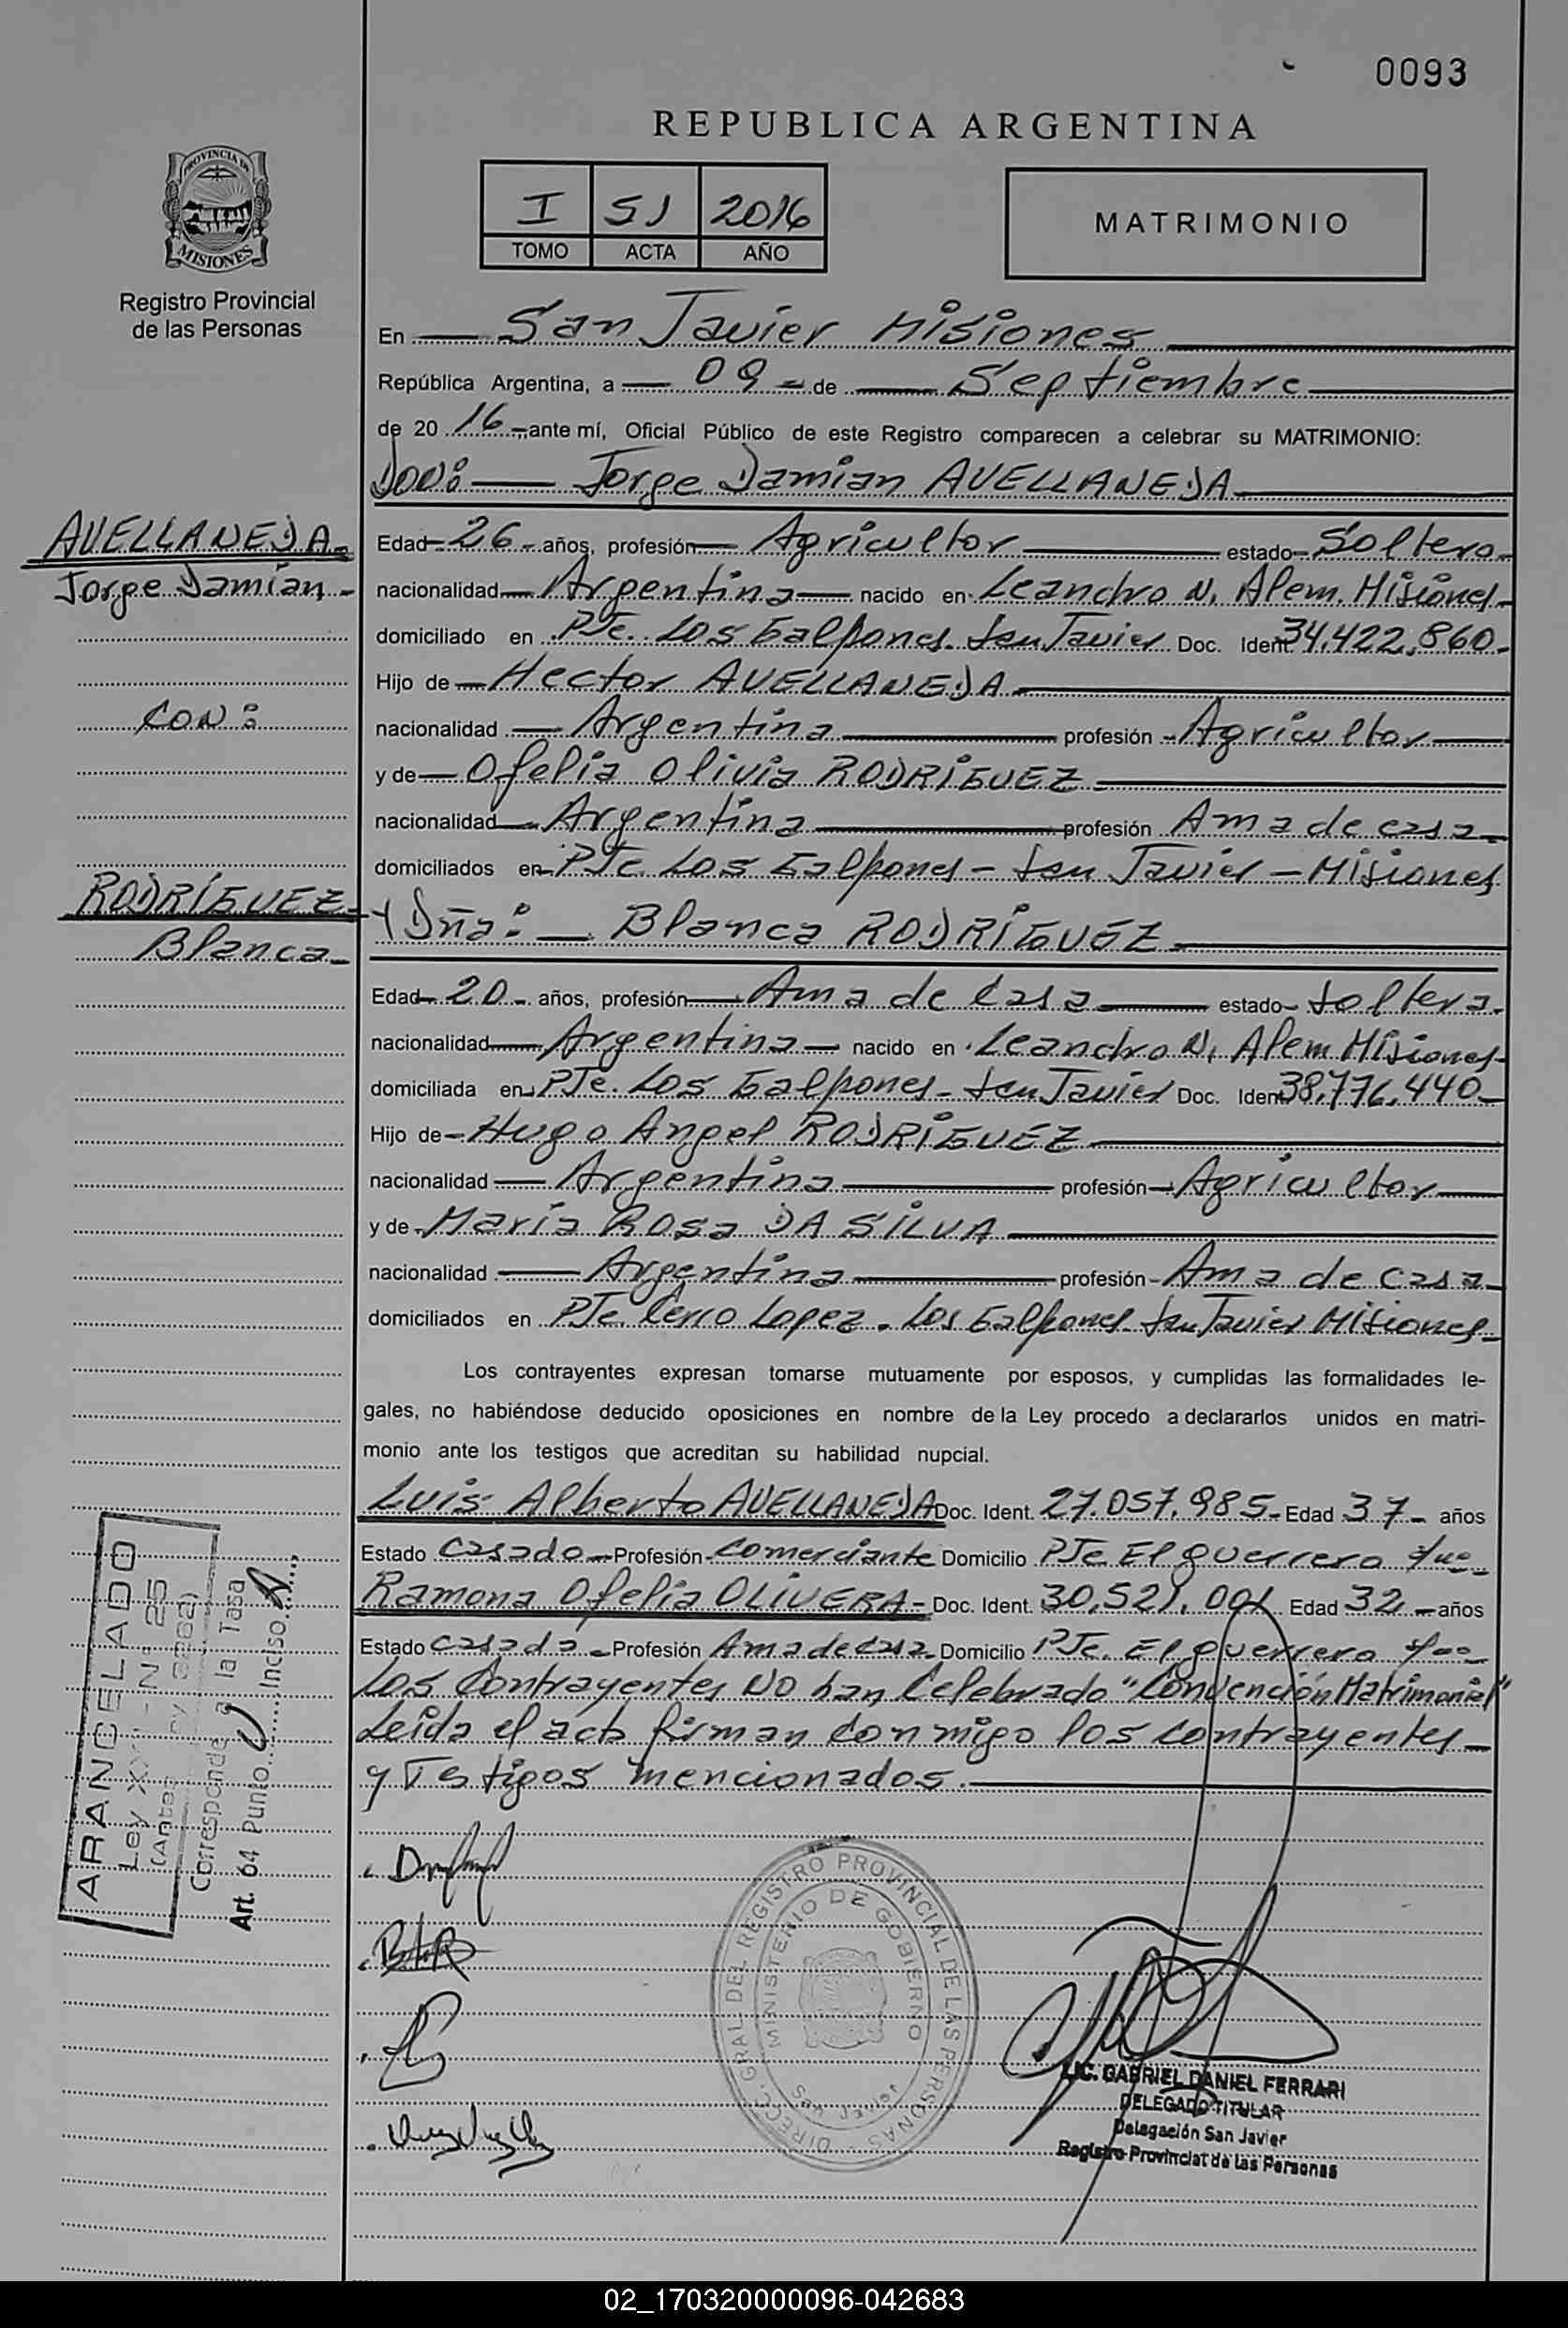 0093
REPUBLICA ARGENTINA
PROVINCIA DE
MISIONES
I 51 2016
TOMO ACTA AÑO
MATRIMONIO
Registro Provincial
de las Personas
En San Javier Misiones
República Argentina, a 09 de Septiembre
de 20 16 ante mí, Oficial Público de este Registro comparecen a celebrar su MATRIMONIO:
DON: Jorge Damian AVELLANEDA
AVELLANEDA
Jorge Damian
CON:
RODRÍGUEZ
Blanca
Edad 26 años, profesión Agricultor estado Soltero
nacionalidad Argentina nacido en Leandro N. Alem. Misiones
domiciliado en PJe. Los Galpones. San Javier Doc. Ident. 34.422.860
Hijo de Hector AVELLANEDA
nacionalidad Argentina profesión Agricultor
y de Ofelia Olivia RODRIGUEZ
nacionalidad Argentina profesión Ama de casa
domiciliados en PJe. Los Galpones - San Javier - Misiones
Y Dña: Blanca RODRÍGUEZ
Edad 20 años, profesión Ama de Casa estado Soltera
nacionalidad Argentina nacido en Leandro N. Alem Misiones
domiciliada en PJe. Los Galpones - San Javier Doc. Ident. 38.776.440
Hijo de Hugo Angel RODRIGUEZ
nacionalidad Argentina profesión Agricultor
y de María Rosa DA SILVA
nacionalidad Argentina profesión Ama de casa
domiciliados en PJe. Cerro Lopez. Los Galpones San Javier Misiones
Los contrayentes expresan tomarse mutuamente por esposos, y cumplidas las formalidades le-
gales, no habiéndose deducido oposiciones en nombre de la Ley procedo a declararlos unidos en matri-
monio ante los testigos que acreditan su habilidad nupcial.
Luis Alberto AVELLANEDA Doc. Ident. 27.057.985 Edad 37 años
Estado Casado Profesión Comerciante Domicilio PJe El guerrero
Ramona Ofelia OLIVERA Doc. Ident. 30.521.001 Edad 32 años
Estado Casada Profesión Ama de casa Domicilio PJe. El guerrero
Los Contrayentes NO han Celebrado "Convención Matrimonial"
Leida el acta firman conmigo los contrayentes
y Testigos mencionados.
ARANCELADO
Ley XVI - Nº 25
(Antes Ley 2882)
Corresponde a la Tasa
Art. 64 Punto Inciso A
DIRECC. GRAL. DEL REGISTRO PROVINCIAL DE LAS PERSONAS
MINISTERIO DE GOBIERNO
LIC. GABRIEL DANIEL FERRARI
DELEGADO TITULAR
Delegación San Javier
Registro Provincial de las Personas
02_170320000096-042683